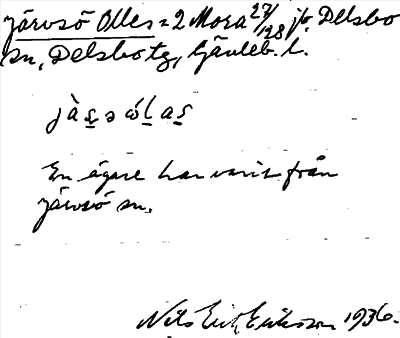 Järvsö Olles = 2 Mora 27/128 jb. Delsbo
sn, Delsbo tg, Gävleb. l.
jàs̲əώl̲as̲
En ägare har varit från
järvsö sn.
Nils Erik Eriksson 1936.